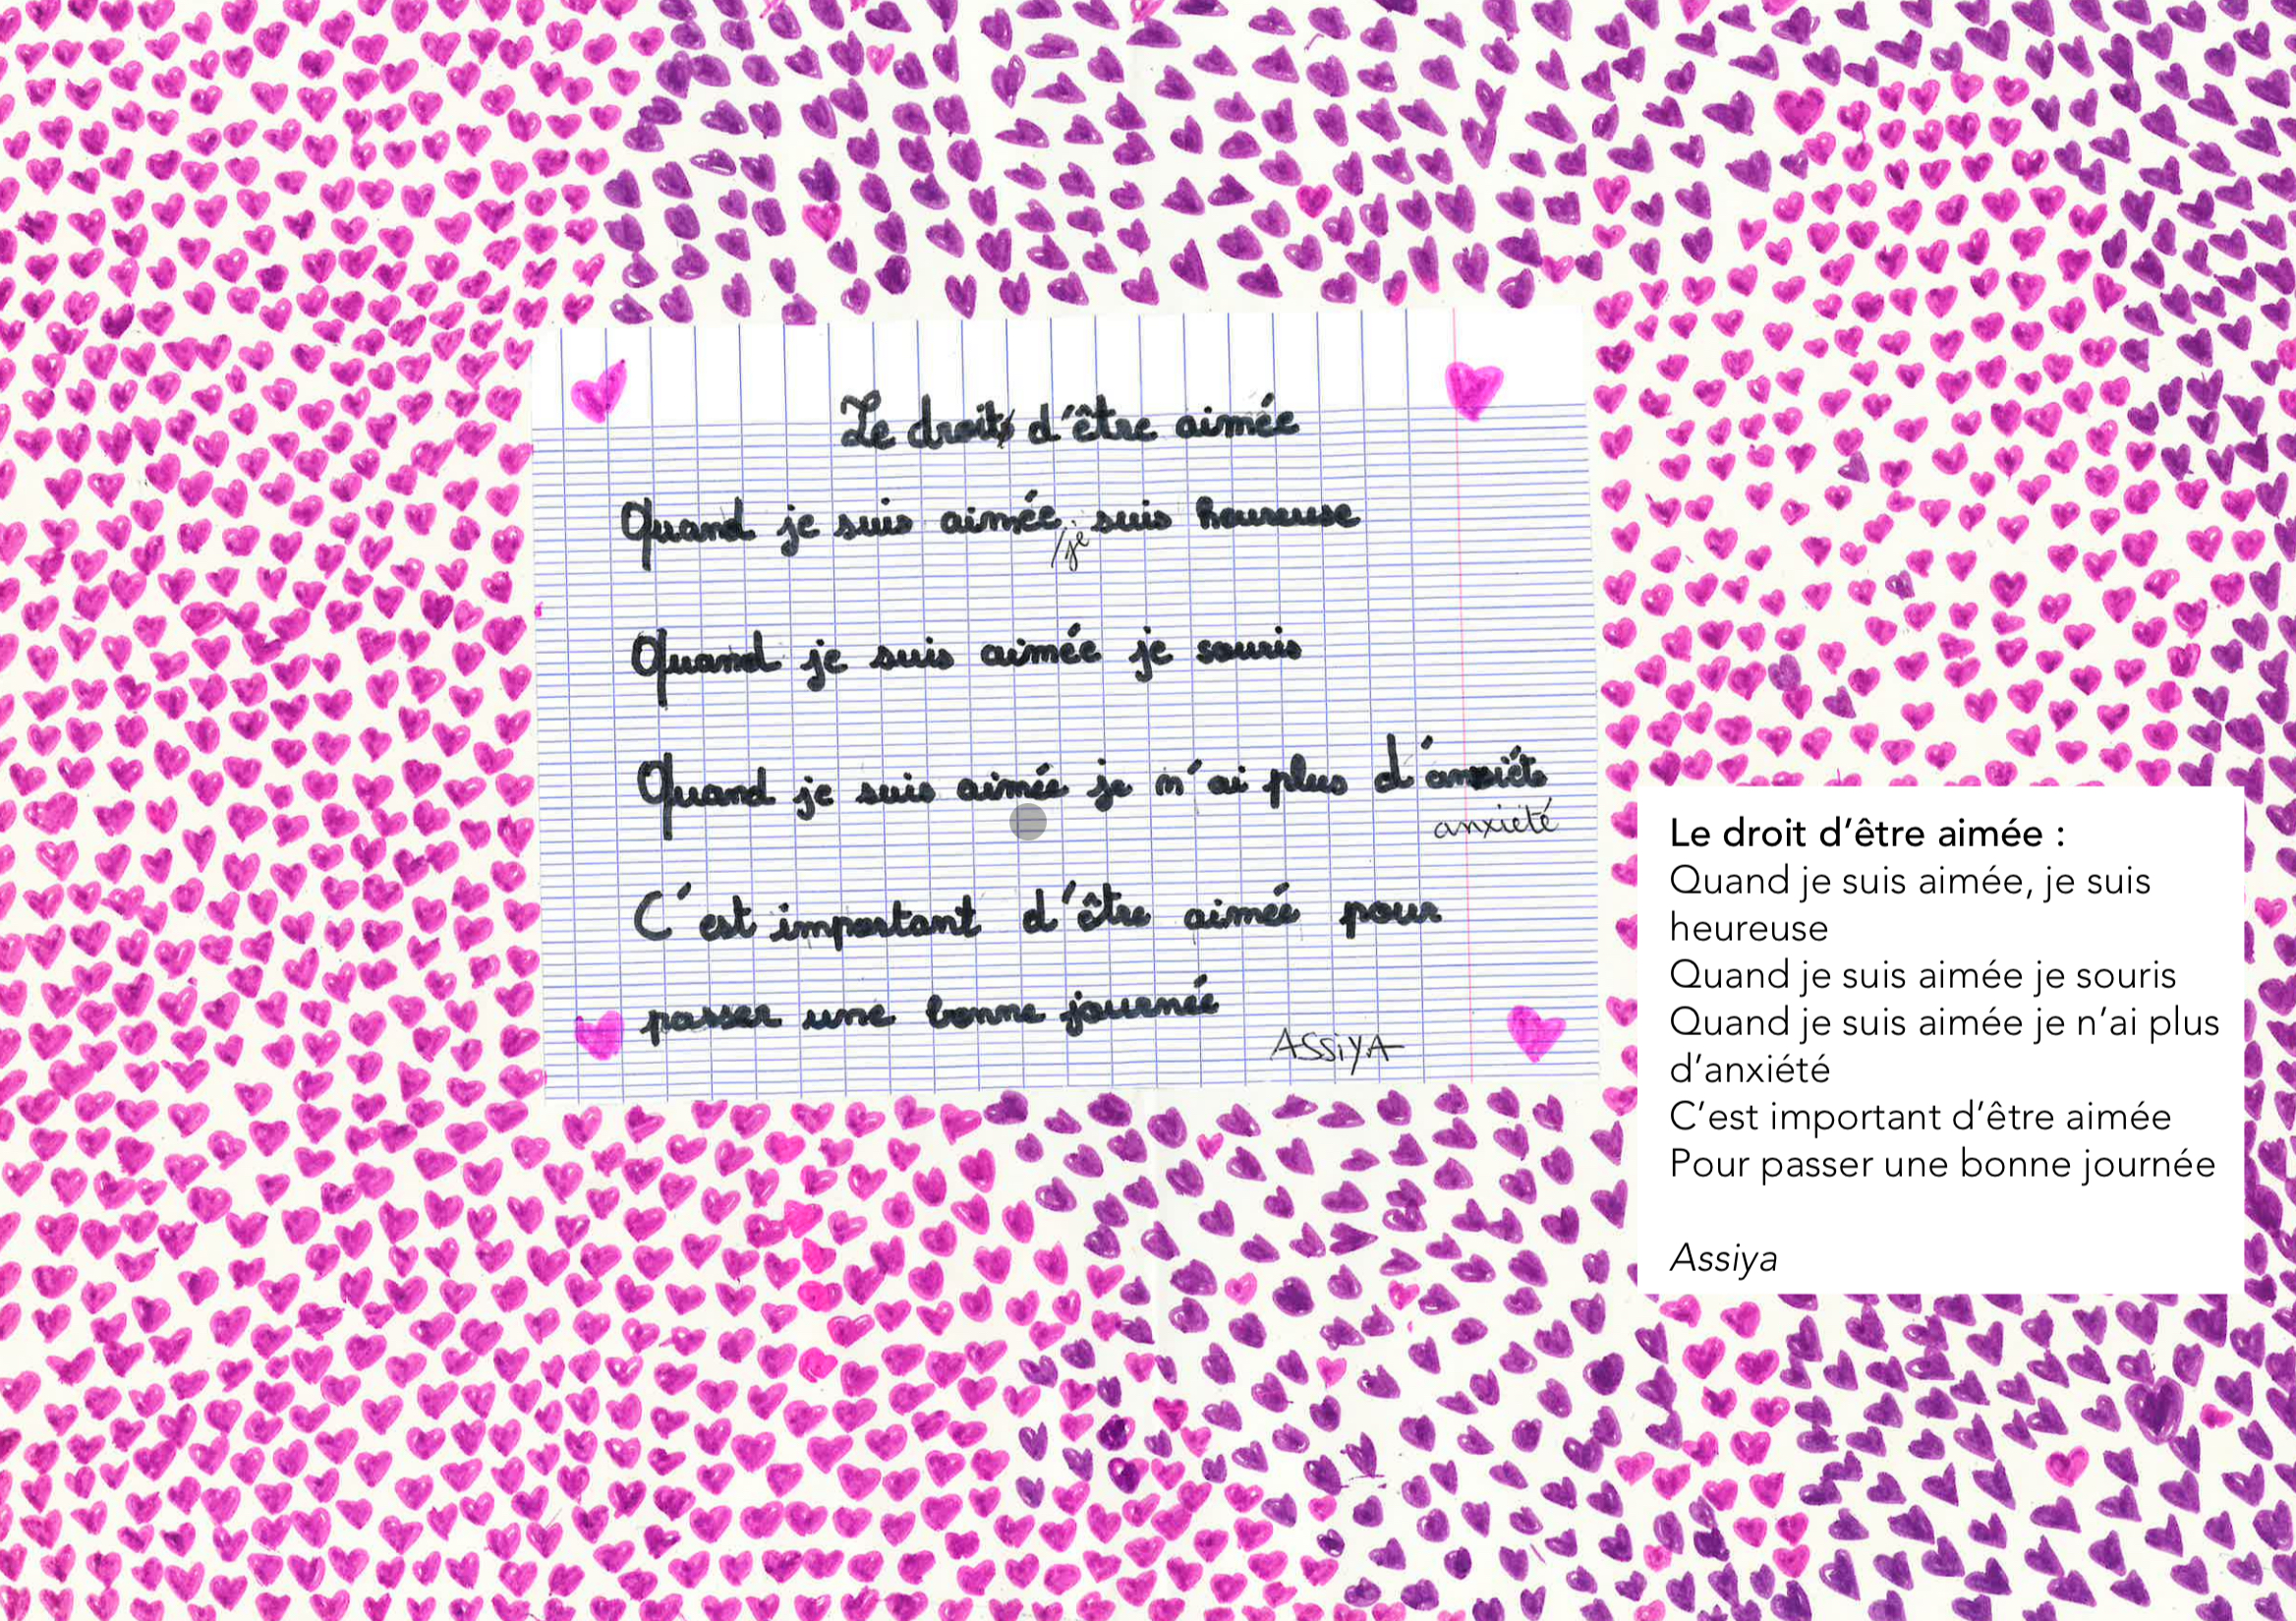 Le droits d'être aimée
Quand je suis aimée, suis heureuse
/je
Quand je suis aimée je souris
Quand je suis aimée je n'ai plus d'anxiéte
anxiété
C'est important d'être aimée pour
passer une bonne journée
ASSiYA
Le droit d'être aimée :
Quand je suis aimée, je suis
heureuse
Quand je suis aimée je souris
Quand je suis aimée je n'ai plus
d'anxiété
C'est important d'être aimée
Pour passer une bonne journée
Assiya